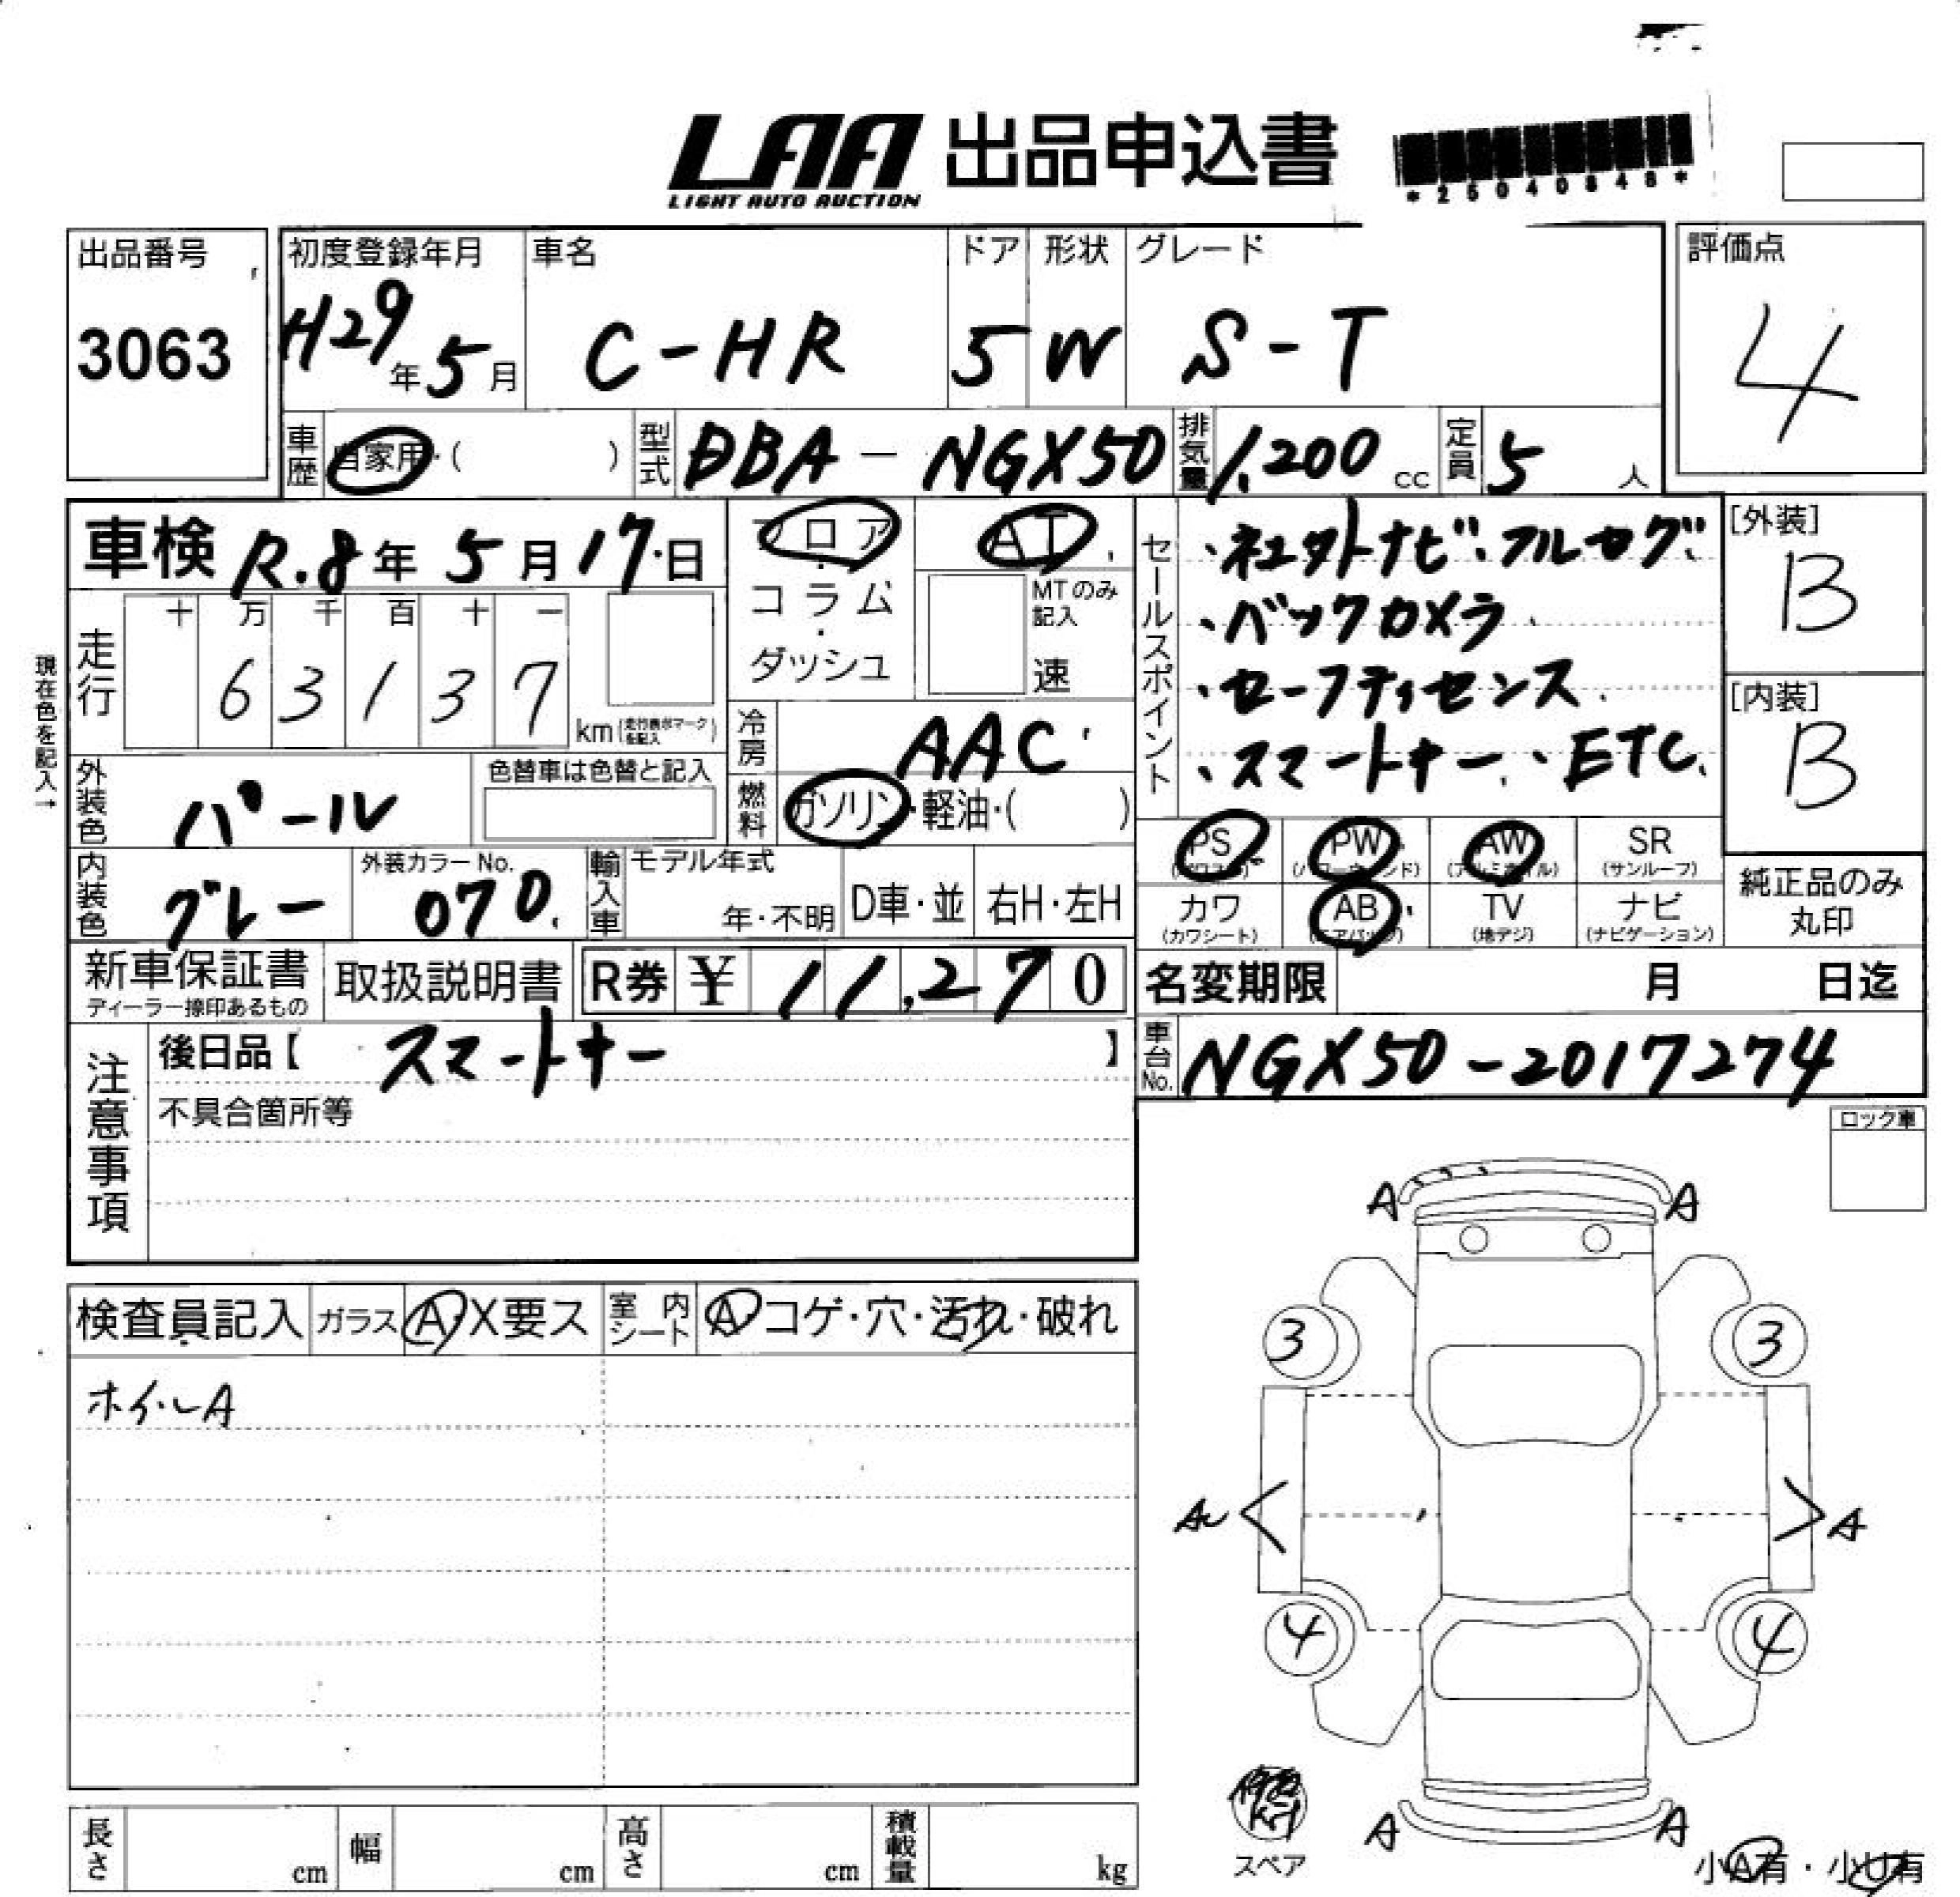 LAA 出品申込書
LIGHT AUTO AUCTION
*25040846*
出品番号
3063
初度登録年月
H29年5月
車名
C-HR
ドア
5
形状
W
グレード
S-T
評価点
4
車歴
自家用・( )
型式
DBA-NGX50
排気量
1,200cc
定員
5人
車検 R.8年5月17日
フロア・コラム・ダッシュ
AT
MTのみ記入
速
現在色を記入→
走行
十 万 千 百 十 一
6 3 1 3 7
km(走行表示マークを記入)
冷房
AAC
外装色
パール
色替車は色替と記入
燃料
ガソリン・軽油・( )
内装色
グレー
外装カラーNo.
070
輸入車
モデル年式
年・不明
D車・並
右H・左H
新車保証書
ディーラー捺印あるもの
取扱説明書
R券 ¥ 11,270
セールスポイント
・コネクトナビ・フルセグ
・バックカメラ
・セーフティセンス
・スマートキー・ETC
[外装]
B
[内装]
B
PS (パワステ)
PW (パワーウィンド)
AW (アルミホイル)
SR (サンルーフ)
カワ (カワシート)
AB (エアバッグ)
TV (地デジ)
ナビ (ナビゲーション)
純正品のみ丸印
名変期限 月 日迄
車台No.
NGX50-2017274
注意事項
後日品【 スマートキー 】
不具合箇所等
ロック車
検査員記入
ガラス
A・X要ス
室内シート
A・コゲ・穴・汚れ・破れ
ホイールA
A A
3 3
A
4 4
A A
スペア
小A有・小U有
長さ cm
幅 cm
高さ cm
積載量 kg